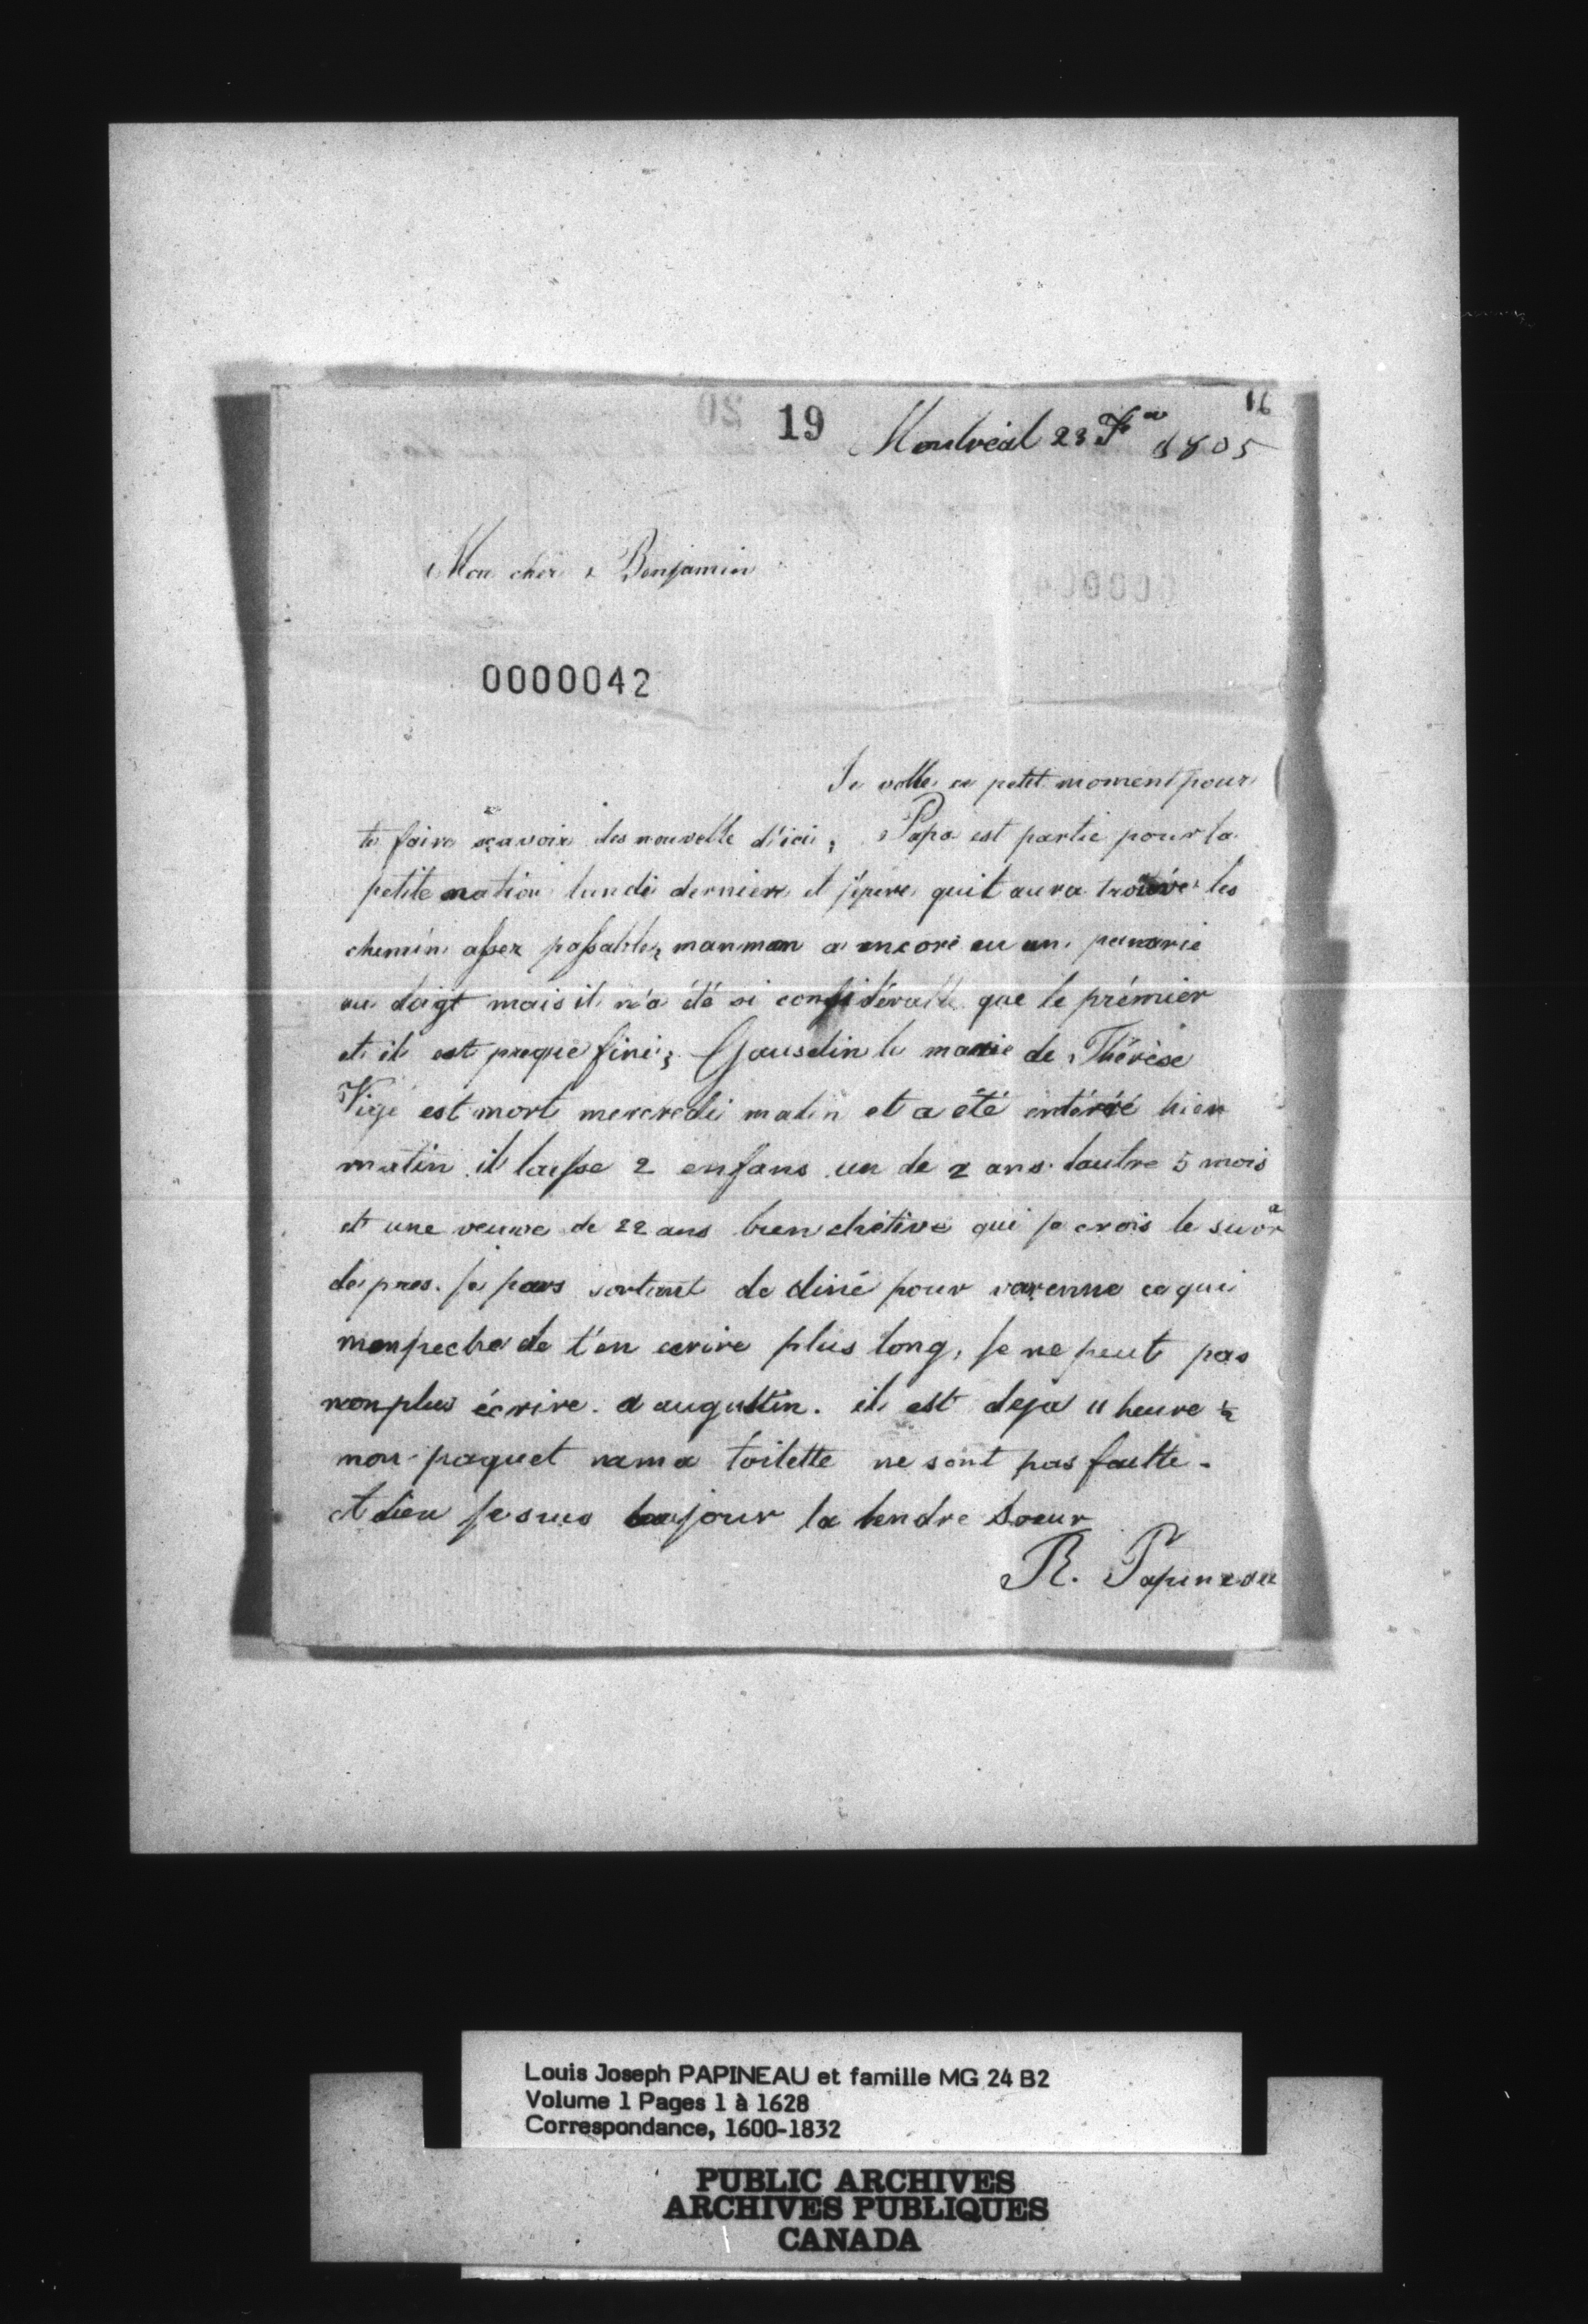 19
16
Montréal 28 Fer 1805
Mon cher Benjamin
0000042
Je volle ce petit moment pour
te faire sçavoir des nouvelle d'ici, Papa est partie pour la
petite nation lundi dernier et j'èpere quil aura trouvé les
chemin assez passable, manman a encore eu un panarie
au doigt mais il n'a été si considérable que le prémier
et il est preque fini, Gauselin le marie de Thérèse
Vigé est mort mercredi matin et a été entérré hier
matin il laisse 2 enfans un de 2 ans lautre 5 mois
et une veuve de 22 ans bien chétive qui je crois le suvra
de pres. Je pars sortant de diné pour varenne ce qui
menpeche de t'en ecrire plus long, Je ne peut pas
non plus écrire a augustin. il est deja 11 heure ½
mon paquet n'ama toilette ne sont pas faitte.
Adieu je suis toujour la tendre Soeur
R. Papineau
Louis Joseph PAPINEAU et famille MG 24 B2
Volume 1 Pages 1 à 1628
Correspondance, 1600-1832
PUBLIC ARCHIVES
ARCHIVES PUBLIQUES
CANADA